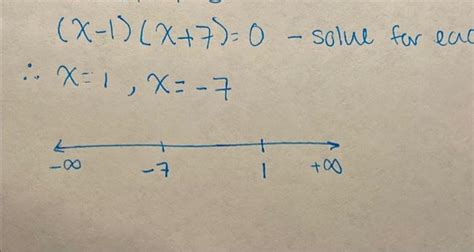 (x-1)(x+7)=0 - solve for eac
∴ x=1, x=-7
-∞ -7 1 +∞